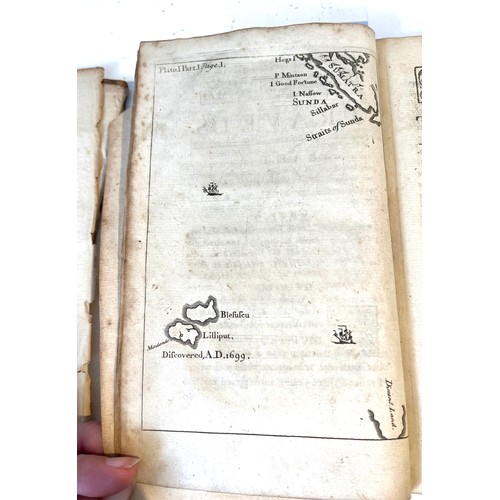 Plate.I.Part.I.Page.I.
Hogs I
SUMATRA
P Mintaon
I Good Fortune
I Nassow
SUNDA
Sillabar
Straits of Sunda
Blefuscu
Lilliput.
Mendendo
Discovered, A.D. 1699.
Dimens Land.